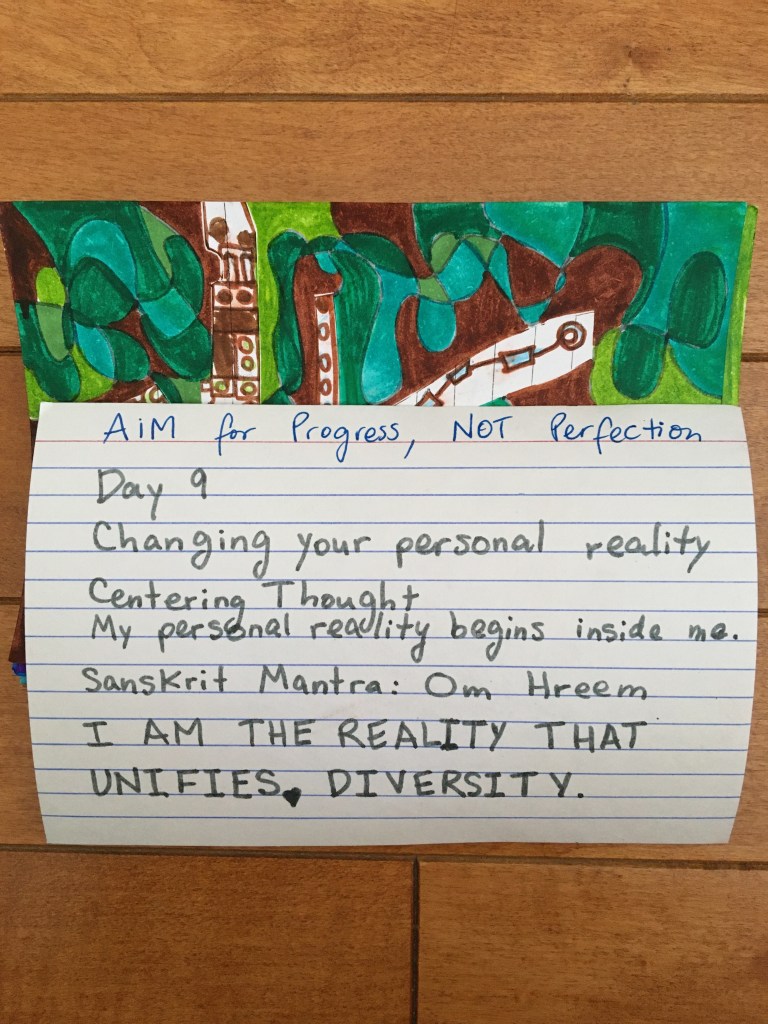 AiM for Progress, NOT Perfection
Day 9
Changing your personal reality
Centering Thought
My personal reality begins inside me.
Sanskrit Mantra: Om Hreem
I AM THE REALITY THAT
UNIFIES DIVERSITY.